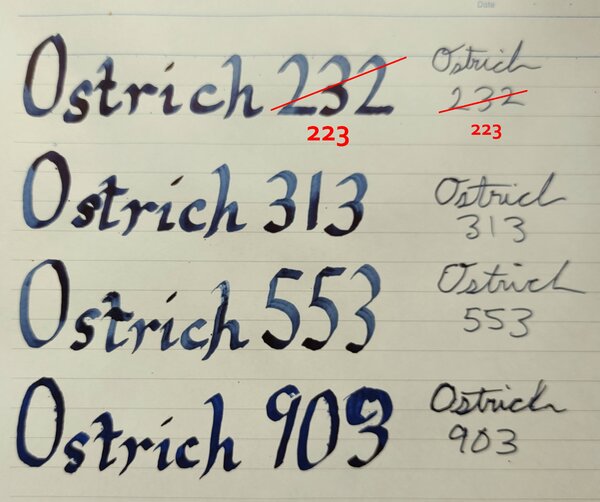 Date
Ostrich 232
223
Ostrich
232
223
Ostrich 313
Ostrich
313
Ostrich 553
Ostrich
553
Ostrich 903
Ostrich
903